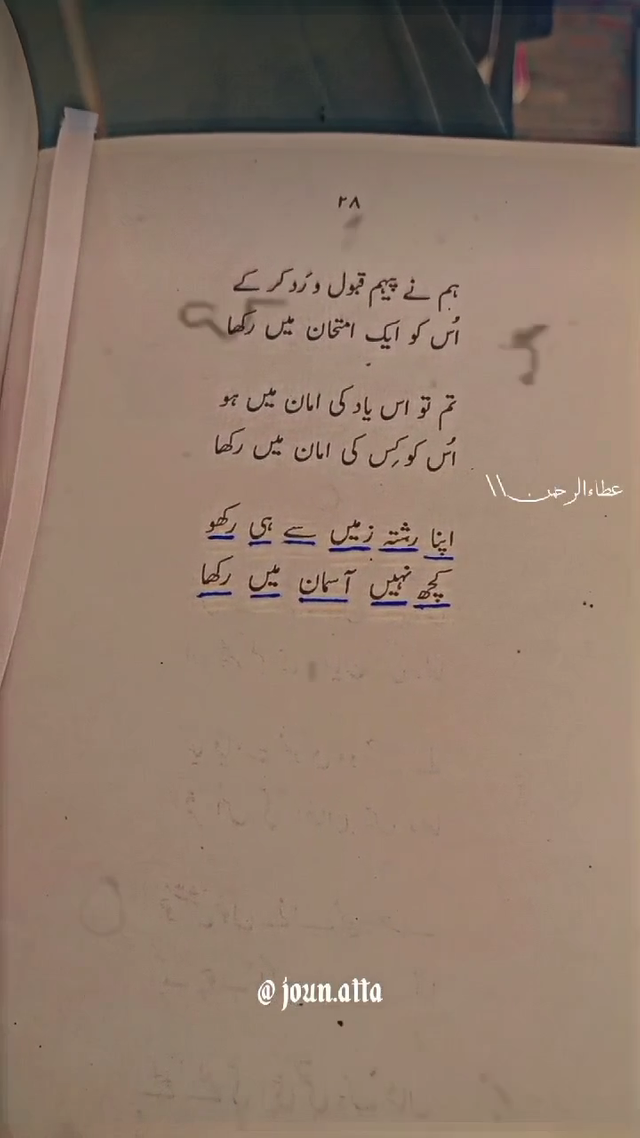 ۲۸
ہم نے پیہم قبول و رَد کر کے
اُس کو ایک امتحان میں رکھا
تم تو اس یاد کی امان میں ہو
اُس کو کِس کی امان میں رکھا
عطاءالرحمن \\
اپنا رشتہ زمیں سے ہی رکھو
کچھ نہیں آسمان میں رکھا
@joun.atta